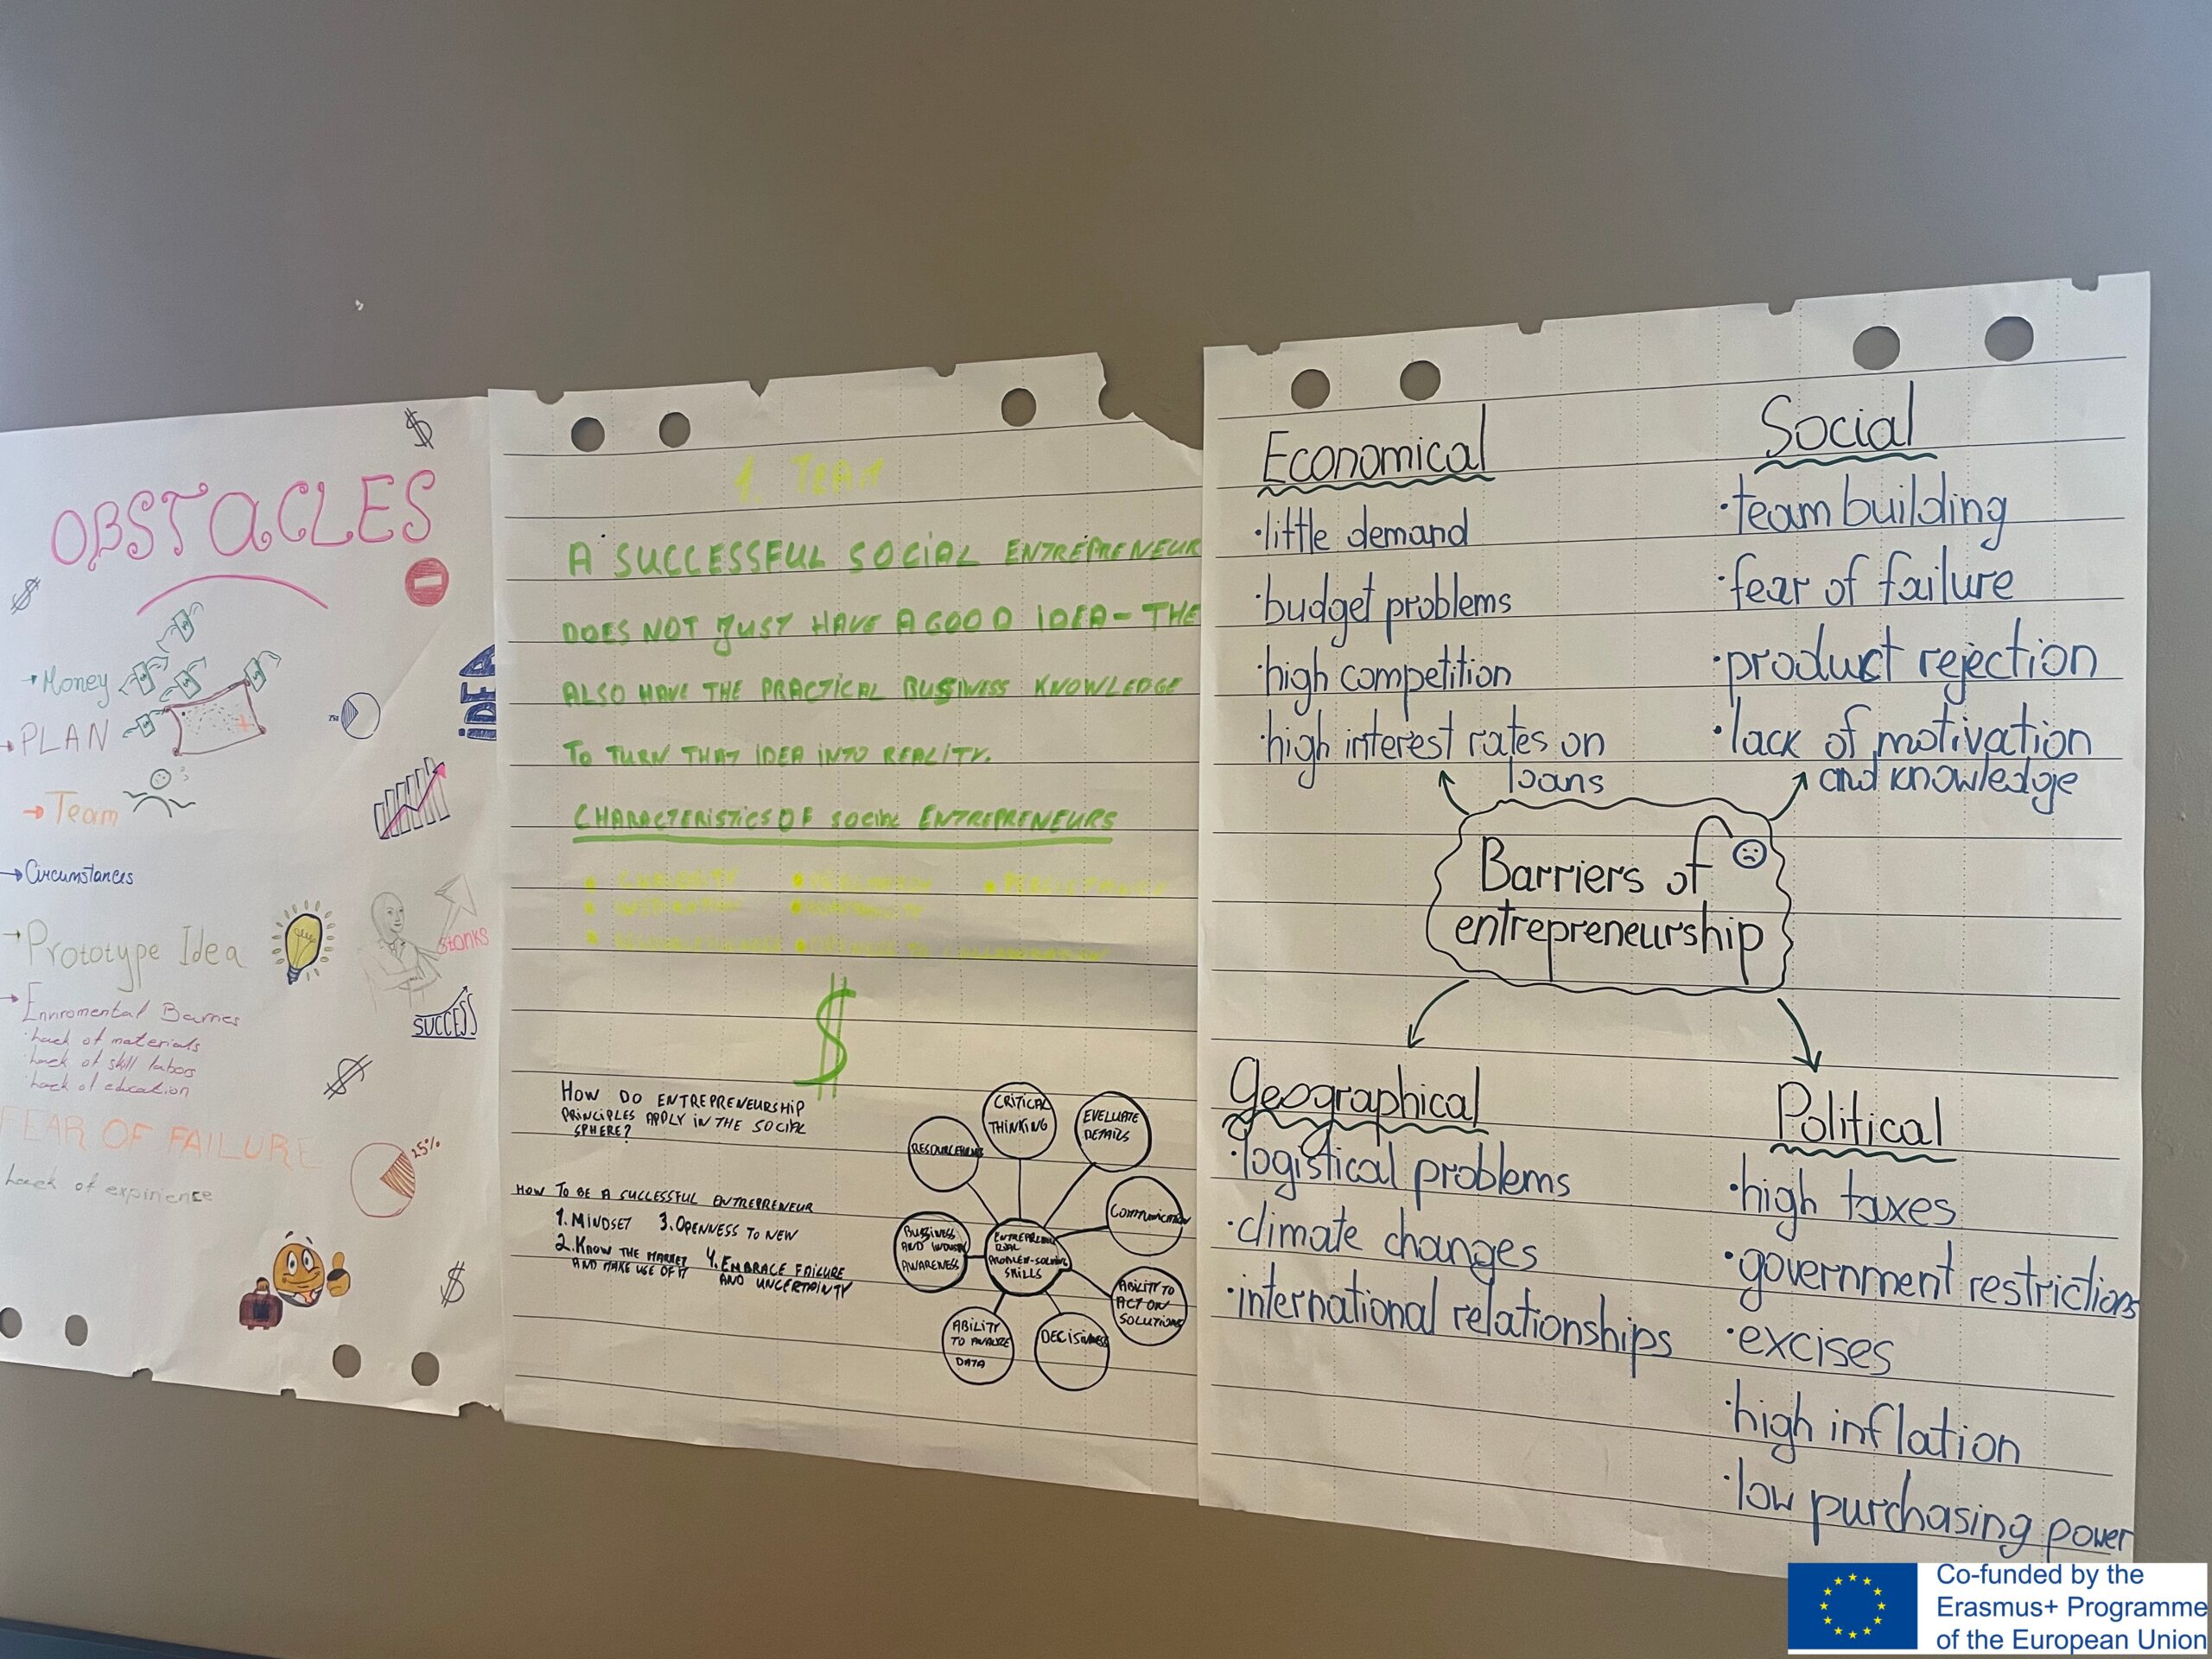 $
OBSTACLES
$
→Money
→PLAN
→Team
→Circumstances
→Prototype Idea
→Enviromental Barries
·Lack of materials
·Lack of skill labors
·Lack of education
FEAR OF FAILURE
Lack of expirience
IDEA
75%
stonks
SUCCESS
$
25%
$
1. TEAM
A SUCCESSFUL SOCIAL ENTREPRENEUR
DOES NOT JUST HAVE A GOOD IDEA - THE
ALSO HAVE THE PRACTICAL BUSSINESS KNOWLEDGE
TO TURN THAT IDEA INTO REALITY.
CHARACTERISTICS OF SOCIAL ENTREPRENEURS
• CURIOSITY
$
HOW DO ENTREPRENEURSHIP
PRINCIPLES APPLY IN THE SOCIAL
SPHERE?
HOW TO BE A SUCCESSFUL ENTREPRENEUR
1. MINDSET 3. OPENNESS TO NEW
2. KNOW THE MARKET 4. EMBRACE FAILURE
AND MAKE USE OF IT AND UNCERTAINTY
CRITICAL
THINKING
EVELUATE
DETAILS
COMMUNICATION
ABILITY TO
ACT ON
SOLUTIONS
DECISIVNESS
ABILITY
TO ANALYZE
DATA
BUSSINESS
AND INDUSTRY
AWARENESS
PROBLEM-SOLVING
SKILLS
Economical
·little demand
·budget problems
·high competition
·high interest rates on
loans
Social
·team building
·fear of failure
·product rejection
·lack of motivation
and knowledge
Barriers of
entrepreneurship
Geographical
·logistical problems
·climate changes
·international relationships
Political
·high taxes
·government restrictions
·excises
·high inflation
·low purchasing power
Co-funded by the
Erasmus+ Programme
of the European Union